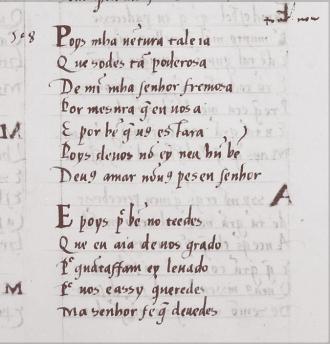 508
Poys mha uẽtura tal e ia
Que sodes tã poderosa
De mĩ mha senhor fremosa
Por mesura q̃ en uos a
E por bẽ q̃ uꝯ estara
Poys de uos nõ ey neu hũ bẽ
Deuꝯ amar nõ uꝯ pes en senhor
E poys pʳ bẽ no teedes
Que eu aia de uos grado
Pʳ quãtaffam ey leuado
Pʳ uos e assy queredes
Ma senhor fe q̃ deuedes